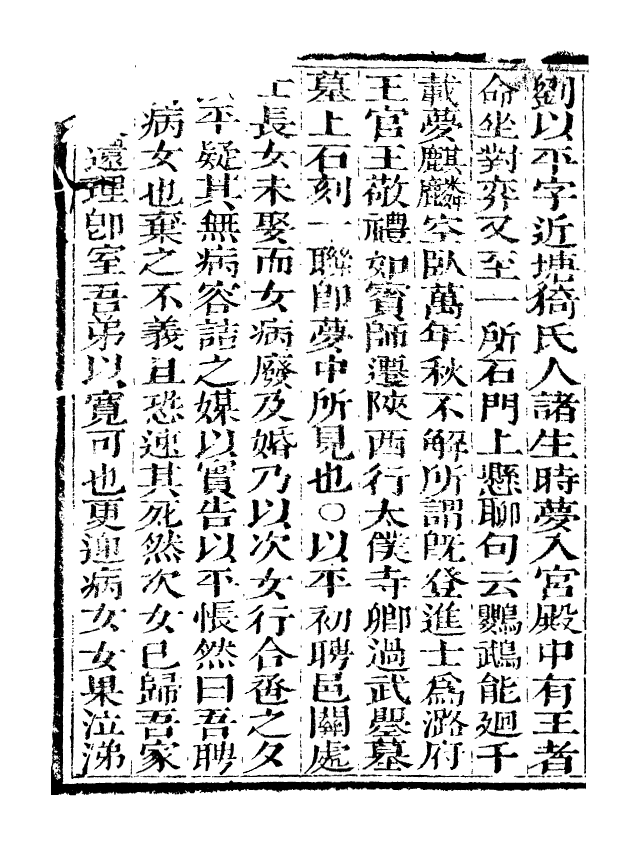 劉以平字近塘猗氏人諸生時夢入宮殿中有王者
命坐對弈又至一所石門上懸聯句云鸚鵡能廻千
載夢麒麟空臥萬年秋不解所謂旣登進士爲潞府
王官王敬禮如賓師遷陝西行太僕寺卿過武墨墓
墓上石刻一聯卽夢中所見也○以平初聘邑關處
士長女未娶而女病廢及婚乃以次女行合卺之夕
平疑其無病容詰之媒以實告以平悵然曰吾聘
病女也棄之不義且恐速其死然次女已歸吾家
遠理卽室吾弟以寬可也更迎病女女果泣涕